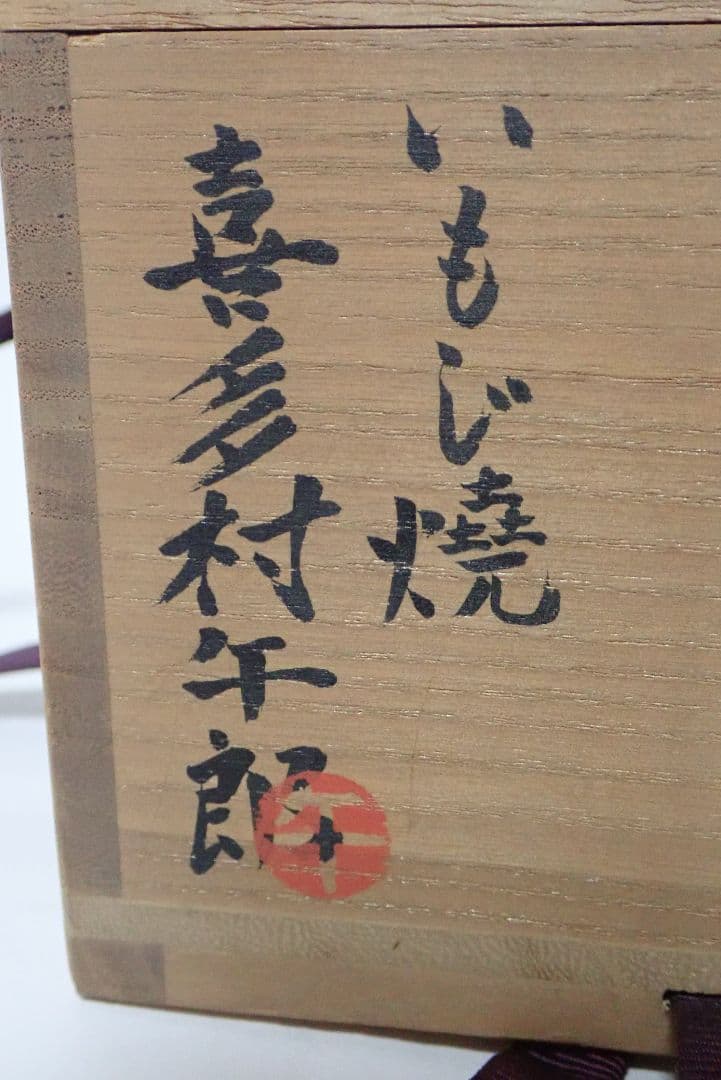 いもじ燒
喜多村午郎
午